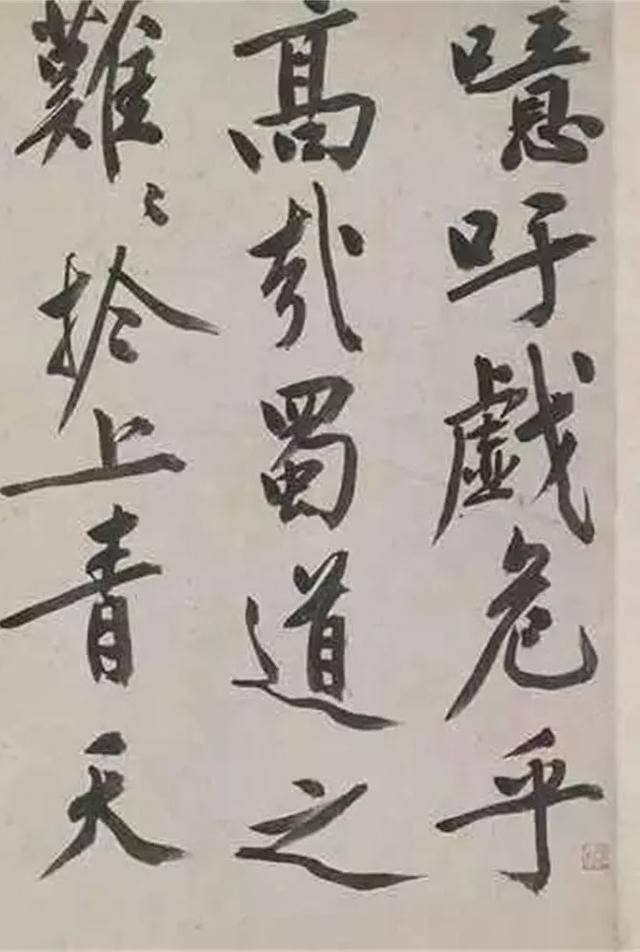 噫吁戲危乎
高哉蜀道之
難〻於上青天